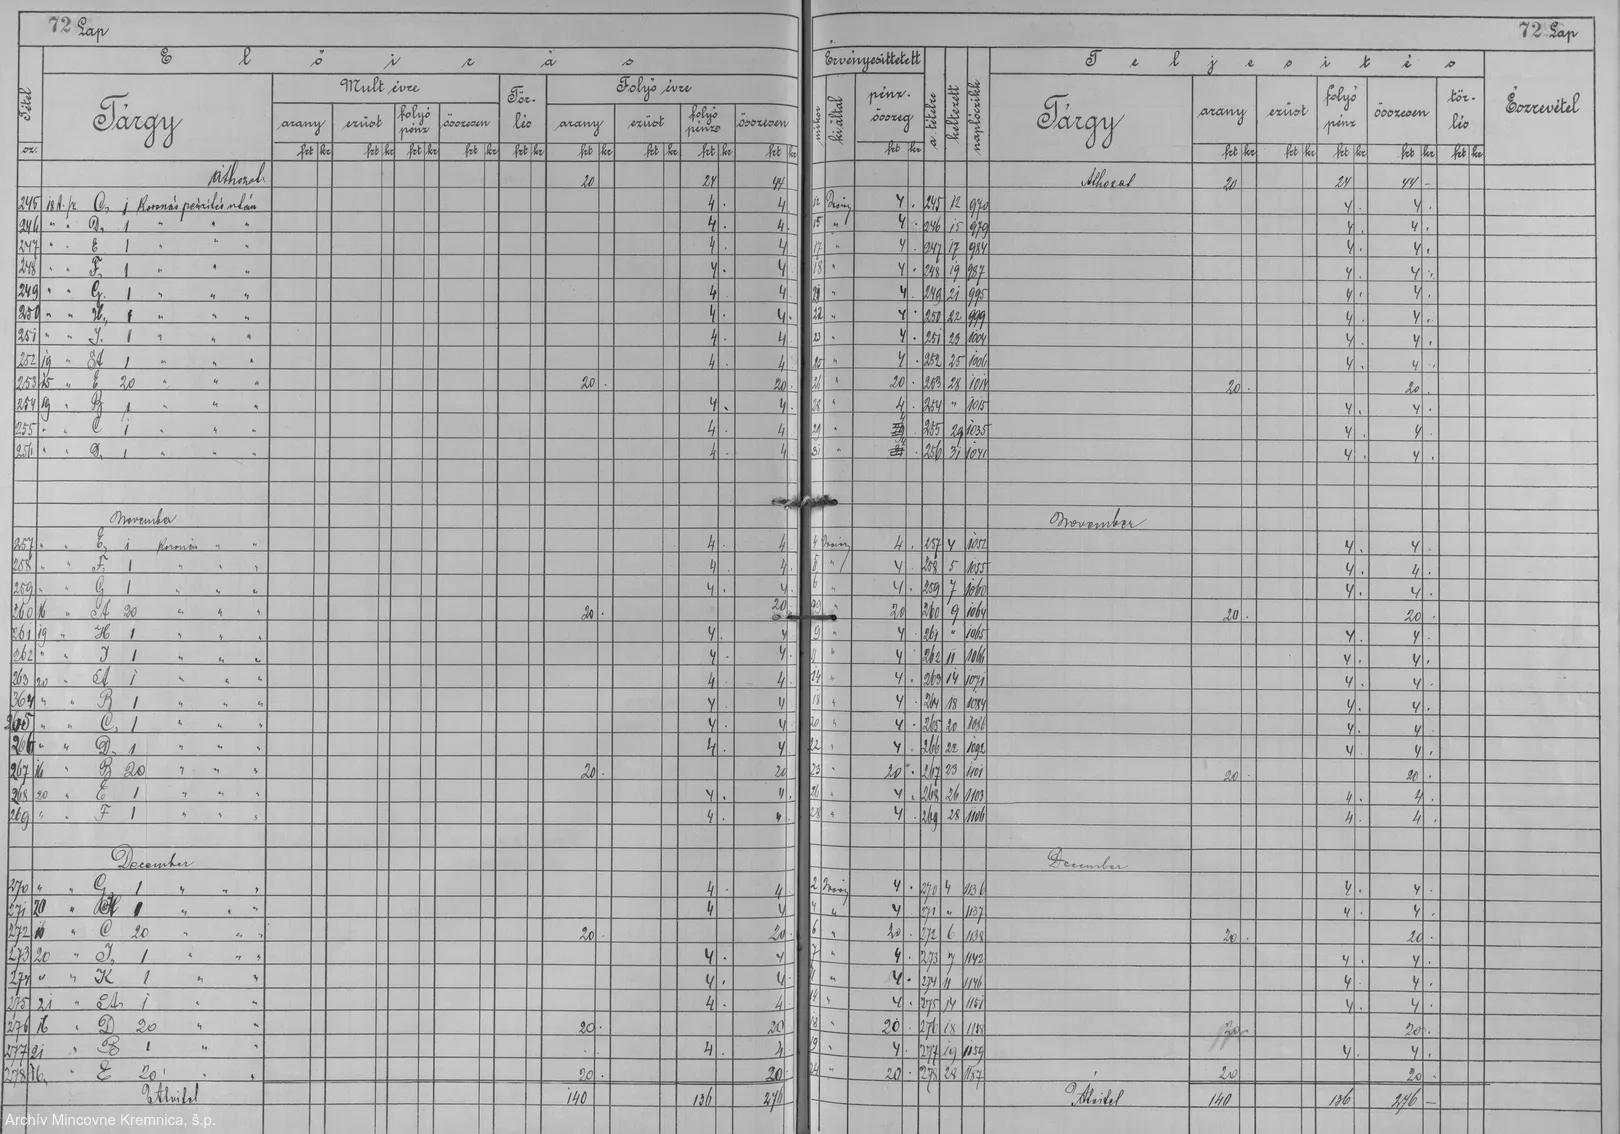 72 Lap
72 Lap
Előirás
Érvényesittetett
Teljesités
Tétel
sz.
Tárgy
Mult évre
Tör-
lés
Folyó évre
mikor
ki által
pénz-
összeg
a tételre
keltezett
naplószikk
Tárgy
arany
ezüst
folyó
pénz
összesen
tör-
lés
Észrevétel
arany ezüst folyó pénz összesen
arany ezüst folyó pénz összesen
frt kr
Áthozat 20 24 44 Áthozat 20 24 44 —
245 18 A. pr C, 1 Koronás pénzelés után 4 . 4 . 12 4 . 245 12 970 4 . 4 .
246 " " D, 1 " " " 4 . 4 . 15 " 4 . 246 15 979 4 . 4 .
247 " " E 1 " " " 4 . 4 17 " 4 . 247 17 984 4 . 4 .
248 " " F, 1 " " " 4 . 4 . 18 " 4 . 248 19 987 4 . 4 .
249 " " G, 1 " " " 4 4 . " 4 . 249 21 995 4 . 4 .
250 " " H, 1 " " " 4 . 4 . 22 " 4 . 250 22 999 4 . 4 .
251 " " I, 1 " " 4 . 4 . 23 " 4 . 251 23 1004 4 . 4 .
252 19 " A 1 " " " 4 . 4 25 " 4 . 252 25 1006 4 . 4 .
253 15 " E 20 " " " 20 . 20 . 26 " 20 . 253 28 1014 20 . 20 .
254 19 " B 1 " " " 4 . 4 . 28 " 4 . 254 " 1015 4 . 4 .
255 " " C 1 " " " 4 . 4 . 29 " 4 . 255 29 1035 4 . 4 .
256 " " D, 1 " " " 4 . 4 . 31 " 4 . 256 31 1041 4 . 4 .
November November
257 " " E, 1 Koronás " " 4 . 4 4 4 . 257 4 1052 4 . 4 .
258 " " F, 1 " " " 4 . 4 . 5 " 4 . 258 5 1055 4 . 4 .
259 " " G 1 " " " 4 . 4 . 6 " 4 . 259 7 1060 4 . 4 .
260 16 " A 20 " " " 20 . 20 " 20 260 9 1064 20 . 20 .
261 19 " H 1 " " " 4 . 4 9 " 4 . 261 " 1065 4 . 4 .
262 " " I 1 " " " 4 . 4 . 11 " 4 . 262 11 1066 4 . 4 .
263 20 " A 1 " " " 4 . 4 . 14 " 4 . 263 14 1071 4 . 4 .
364 " " B 1 " " " 4 4 . 18 " 4 . 264 18 1084 4 . 4 .
265 " " C, 1 " " " 4 . 4 . 20 " 4 . 265 20 1086 4 . 4 .
266 " " D, 1 " " " 4 . 4 22 " 4 . 266 22 1092 4 . 4 .
267 16 " B 20 " " " 20 . 20 23 " 20 . 267 23 1101 20 . 20 .
268 20 " E 1 " " " 4 . 4 . 26 " 4 . 268 26 1103 4 . 4 .
269 " " F 1 " " " 4 . 4 28 " 4 . 269 28 1106 4 . 4 .
December December
270 " " G, 1 " " " 4 . 4 . 2 4 . 270 4 1136 4 . 4 .
271 20 " H 1 " " " 4 4 4 " 4 . 271 " 1137 4 . 4 .
272 16 " C 20 " " " 20 . 20 . 6 " 20 . 272 6 1138 20 . 20 .
273 20 " I, 1 " " " 4 . 4 7 " 4 . 273 7 1142 4 . 4 .
274 " " K 1 " " 4 . 4 . 11 " 4 . 274 11 1146 4 . 4 .
275 21 " A, 1 " " 4 . 4 . 14 " 4 . 275 14 1151 4 . 4 .
276 16 " D 20 " " 20 . 20 18 " 20 . 276 18 1158 20 20 .
277 21 " B 1 " " 4 . 4 19 " 4 . 277 19 1159 4 . 4 .
278 16 " E 20 " " 20 . 20 . 24 " 20 . 278 28 1187 20 20 .
Átvitel 140 136 276 Átvitel 140 136 276 —
Archív Mincovne Kremnica, š.p.